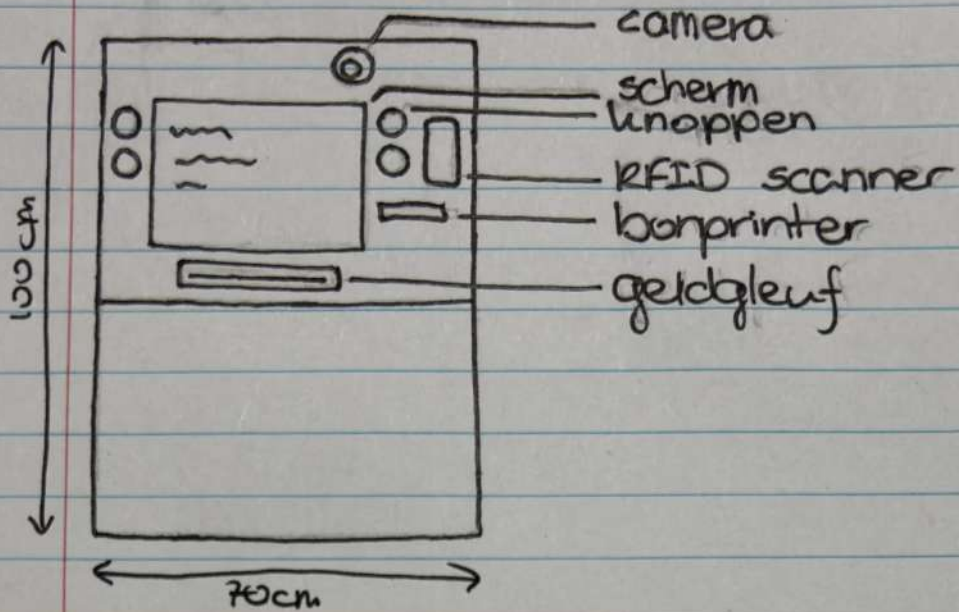 camera
scherm
knoppen
RFID scanner
bonprinter
geldgleuf
100 cm
70cm